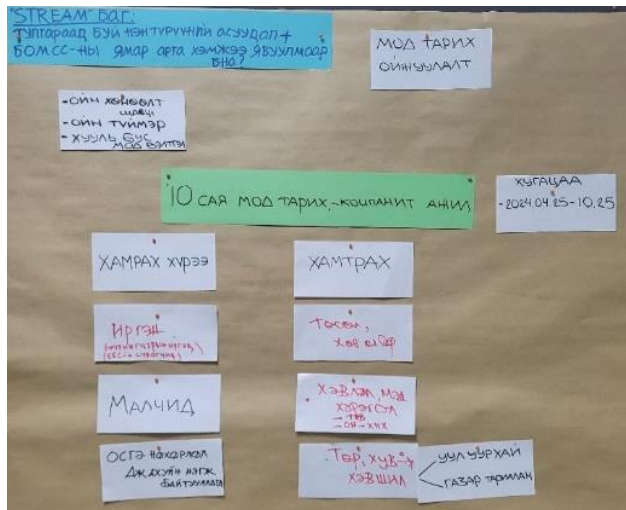 "STREAM" БАГ:
ТУЛГАРААД БУЙ НЭН ТҮРҮҮНИЙ АСУУДАЛ +
БОМСС-НЫ ЯМАР АРГА ХЭМЖЭЭ ЯВУУЛМААР
БНА?
МОД ТАРИХ
ОЙЖУУЛАЛТ
- ОЙН ХӨНӨӨЛТ
ШАВЬЖ
- ОЙН ТҮЙМЭР
- ХУУЛЬ БУС
МОД БЭЛТГЭЛ
10 САЯ МОД ТАРИХ, - КОМПАНИТ АЖИЛ
ХУГАЦАА
- 2024.04.25 - 10.25
ХАМРАХ ХҮРЭЭ
ХАМТРАХ
ИРГЭН
ТӨСӨЛ,
ХӨТӨЛБӨР
МАЛЧИД
ХЭВЛЭЛ, МЭД
ХЭРЭГСЭЛ
- ТВ
- ОН - ХНХ
ААЖ АХУЙН НЭГЖ
БАЙГУУЛЛАГА
ТӨР, ХУВ
ХЭВШИЛ
УУЛ УУРХАЙ
ГАЗАР ТАРИАЛАН